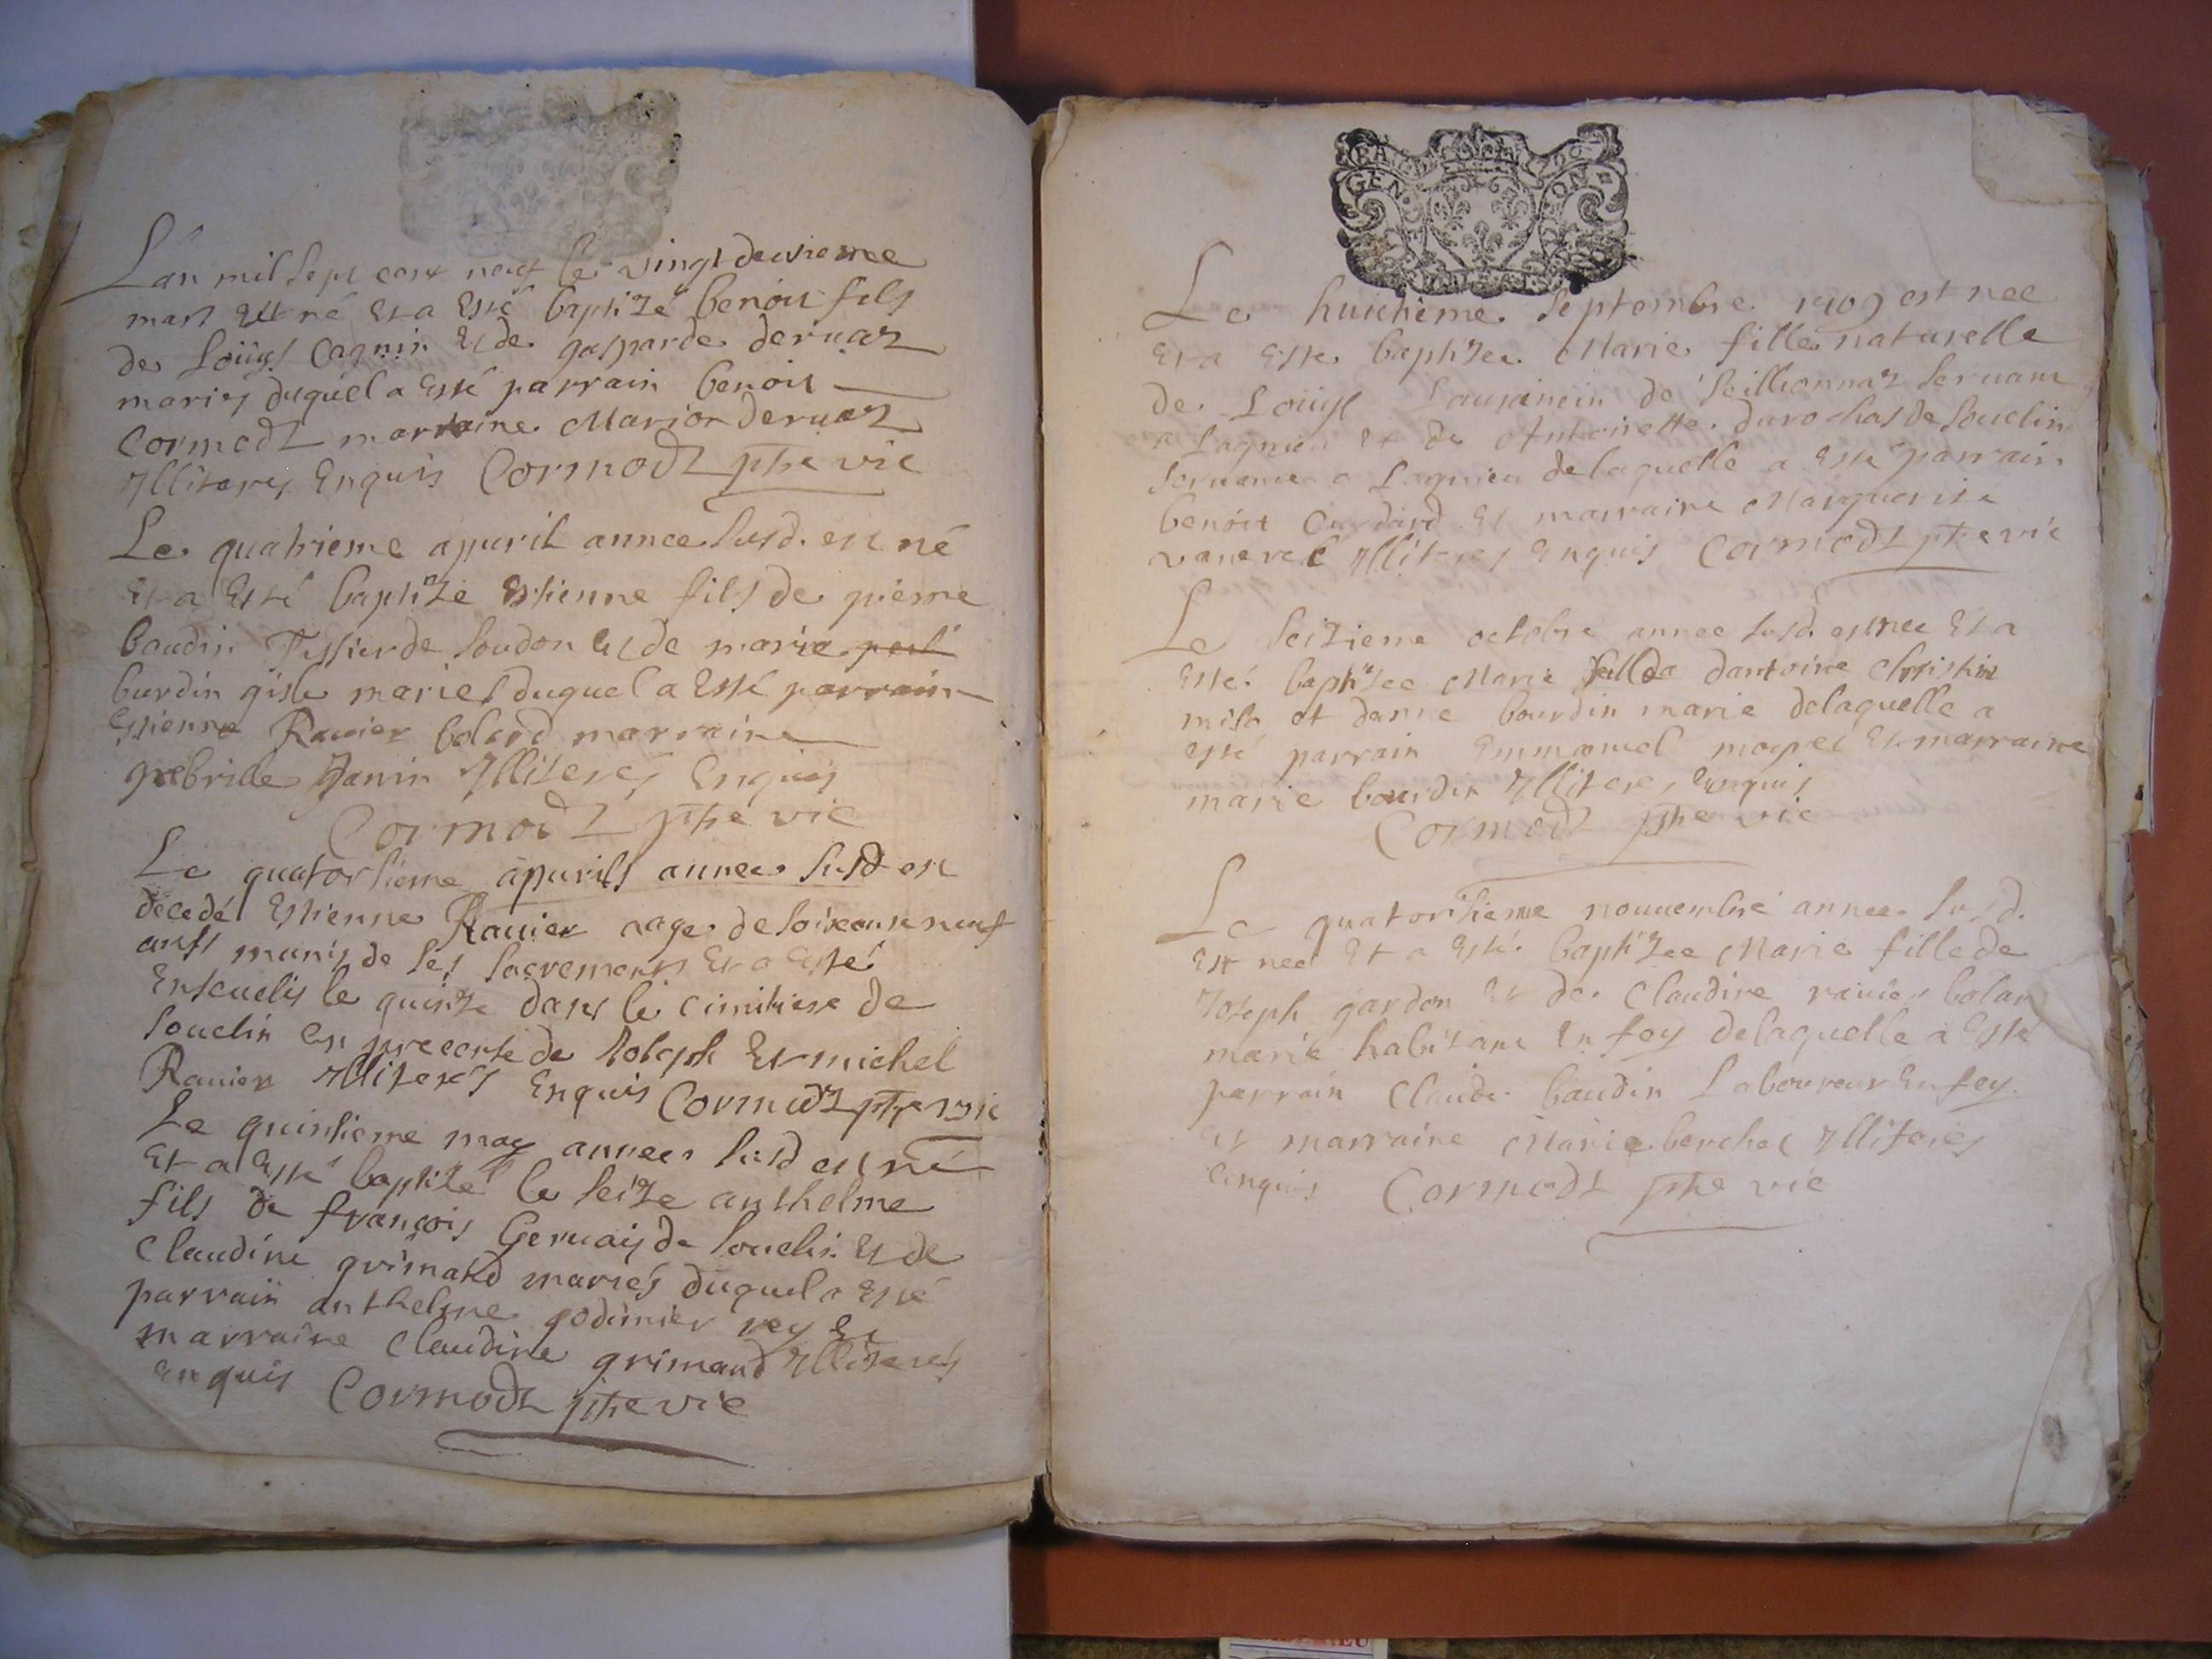 L'an mil sept cent neuf le vingt deusieme
mars est né et a esté baptizé benoit fils
de Loüys Cagnin et de gasparde deruaz
mariés duquel a esté parrain benoit
Cormodz marraine Marion deruaz
Illiterés Enquis Cormodz ptre vic
Le quatrieme apuril annee susd. est né
et a esté baptizé Estienne fils de pierre
baudin Tissier de soudon et de marie
burdin gisle mariés duquel a esté parrain
Estienne Rauier bolard marraine
gabrielle Janin Illiterés Enquis
Cormodz ptre vic
Le quatorsieme apurils annee susd est
décedé Estienne Rauier aage de soixante neuf
ants munis de ses sacrements et a esté
Enseuelis le quinze dans le cimitiere de
souclin en presence de Joseph et michel
Rauier Illiterés Enquis Cormodz ptre vic
Le quinsieme may annee susd est né
et a esté baptizé le seize anthelme
fils de françois Geruais de souclin et de
Claudine grimand mariés duquel a esté
parrain anthelme godimier rey et
marraine Claudine grimand Illiterés
enquis Cormodz ptre vic
GEN ON
Le huictieme septembre 1709 est nee
et a esté baptizee Marie fille naturelle
de Loüys de seillionnaz seruant
a Lagnieu et de Antoinette durochas de souclin
seruante a Lagnieu de laquelle a esté parrain
benoit et marraine Marguerite
vanerel Illiterés Enquis Cormodz ptre vic
Le seizieme octobre annee susd. est nee et a
esté baptizee Marie dantoine Christin
et danne bourdin marie delaquelle a
esté parrain Emmanuel et marraine
marie bourdin Illiterés enquis
Cormodz ptre vic
Le quatorsieme nouuembre annee susd.
est nee et a esté baptizee Marie fille de
Joseph gardon et de Claudine rauier bolar
marié habitant En fey delaquelle a esté
parrain Claude baudin Laboureur En fey.
et marraine Marie berchet Illiterés
enquis Cormodz ptre vic